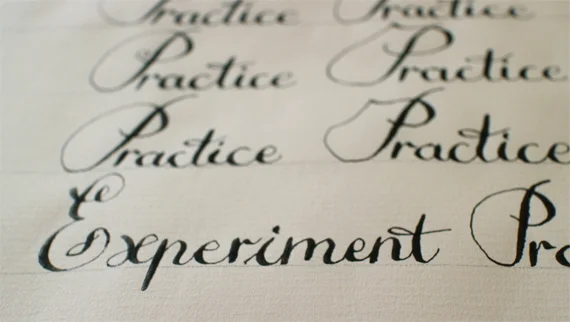 Practice Practice
Practice Practice
Practice Practice
Experiment